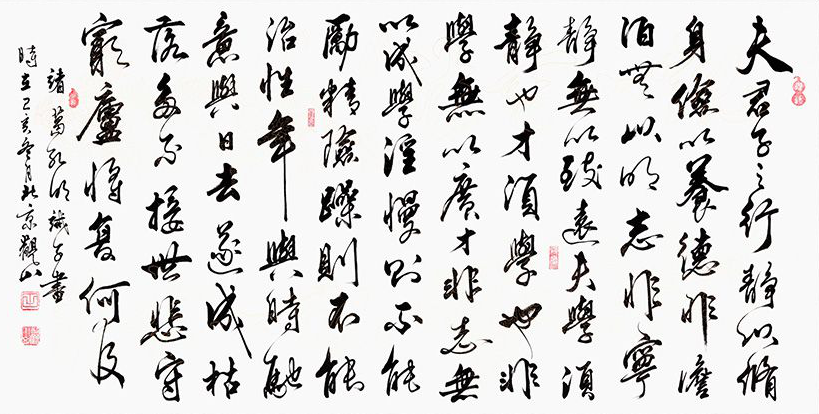 夫君子之行靜以脩
身儉以養德非澹
泊無以明志非寧
靜無以致遠夫學須
靜也才須學也非
學無以廣才非志無
以成學淫慢則不能
勵精險躁則不能
治性年與時馳
意與日去遂成枯
落多不接世悲守
窮廬將復何及
諸葛孔明誡子書
時在己亥冬月北京觀山